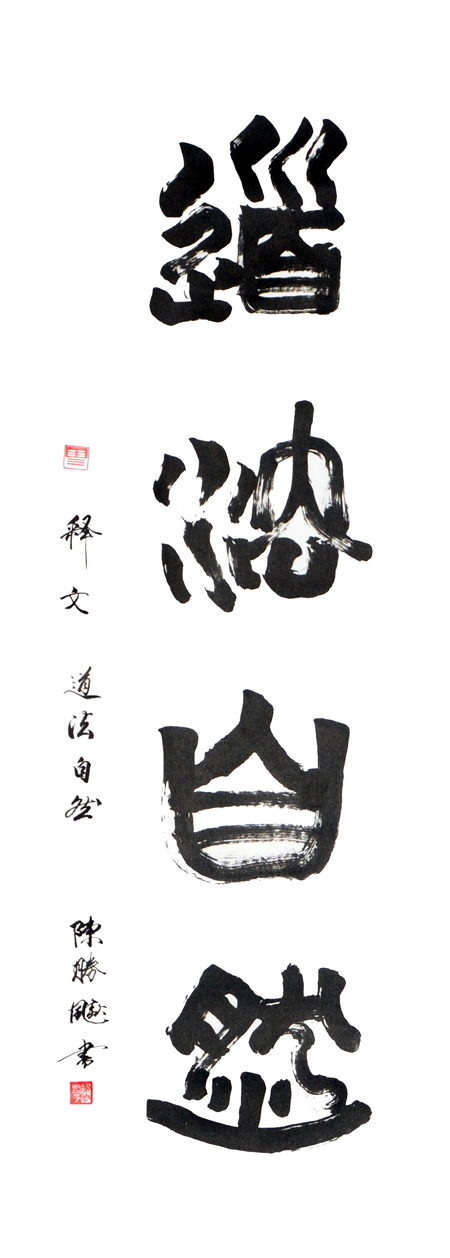 道法自然
释文 道法自然 陳勝飚書